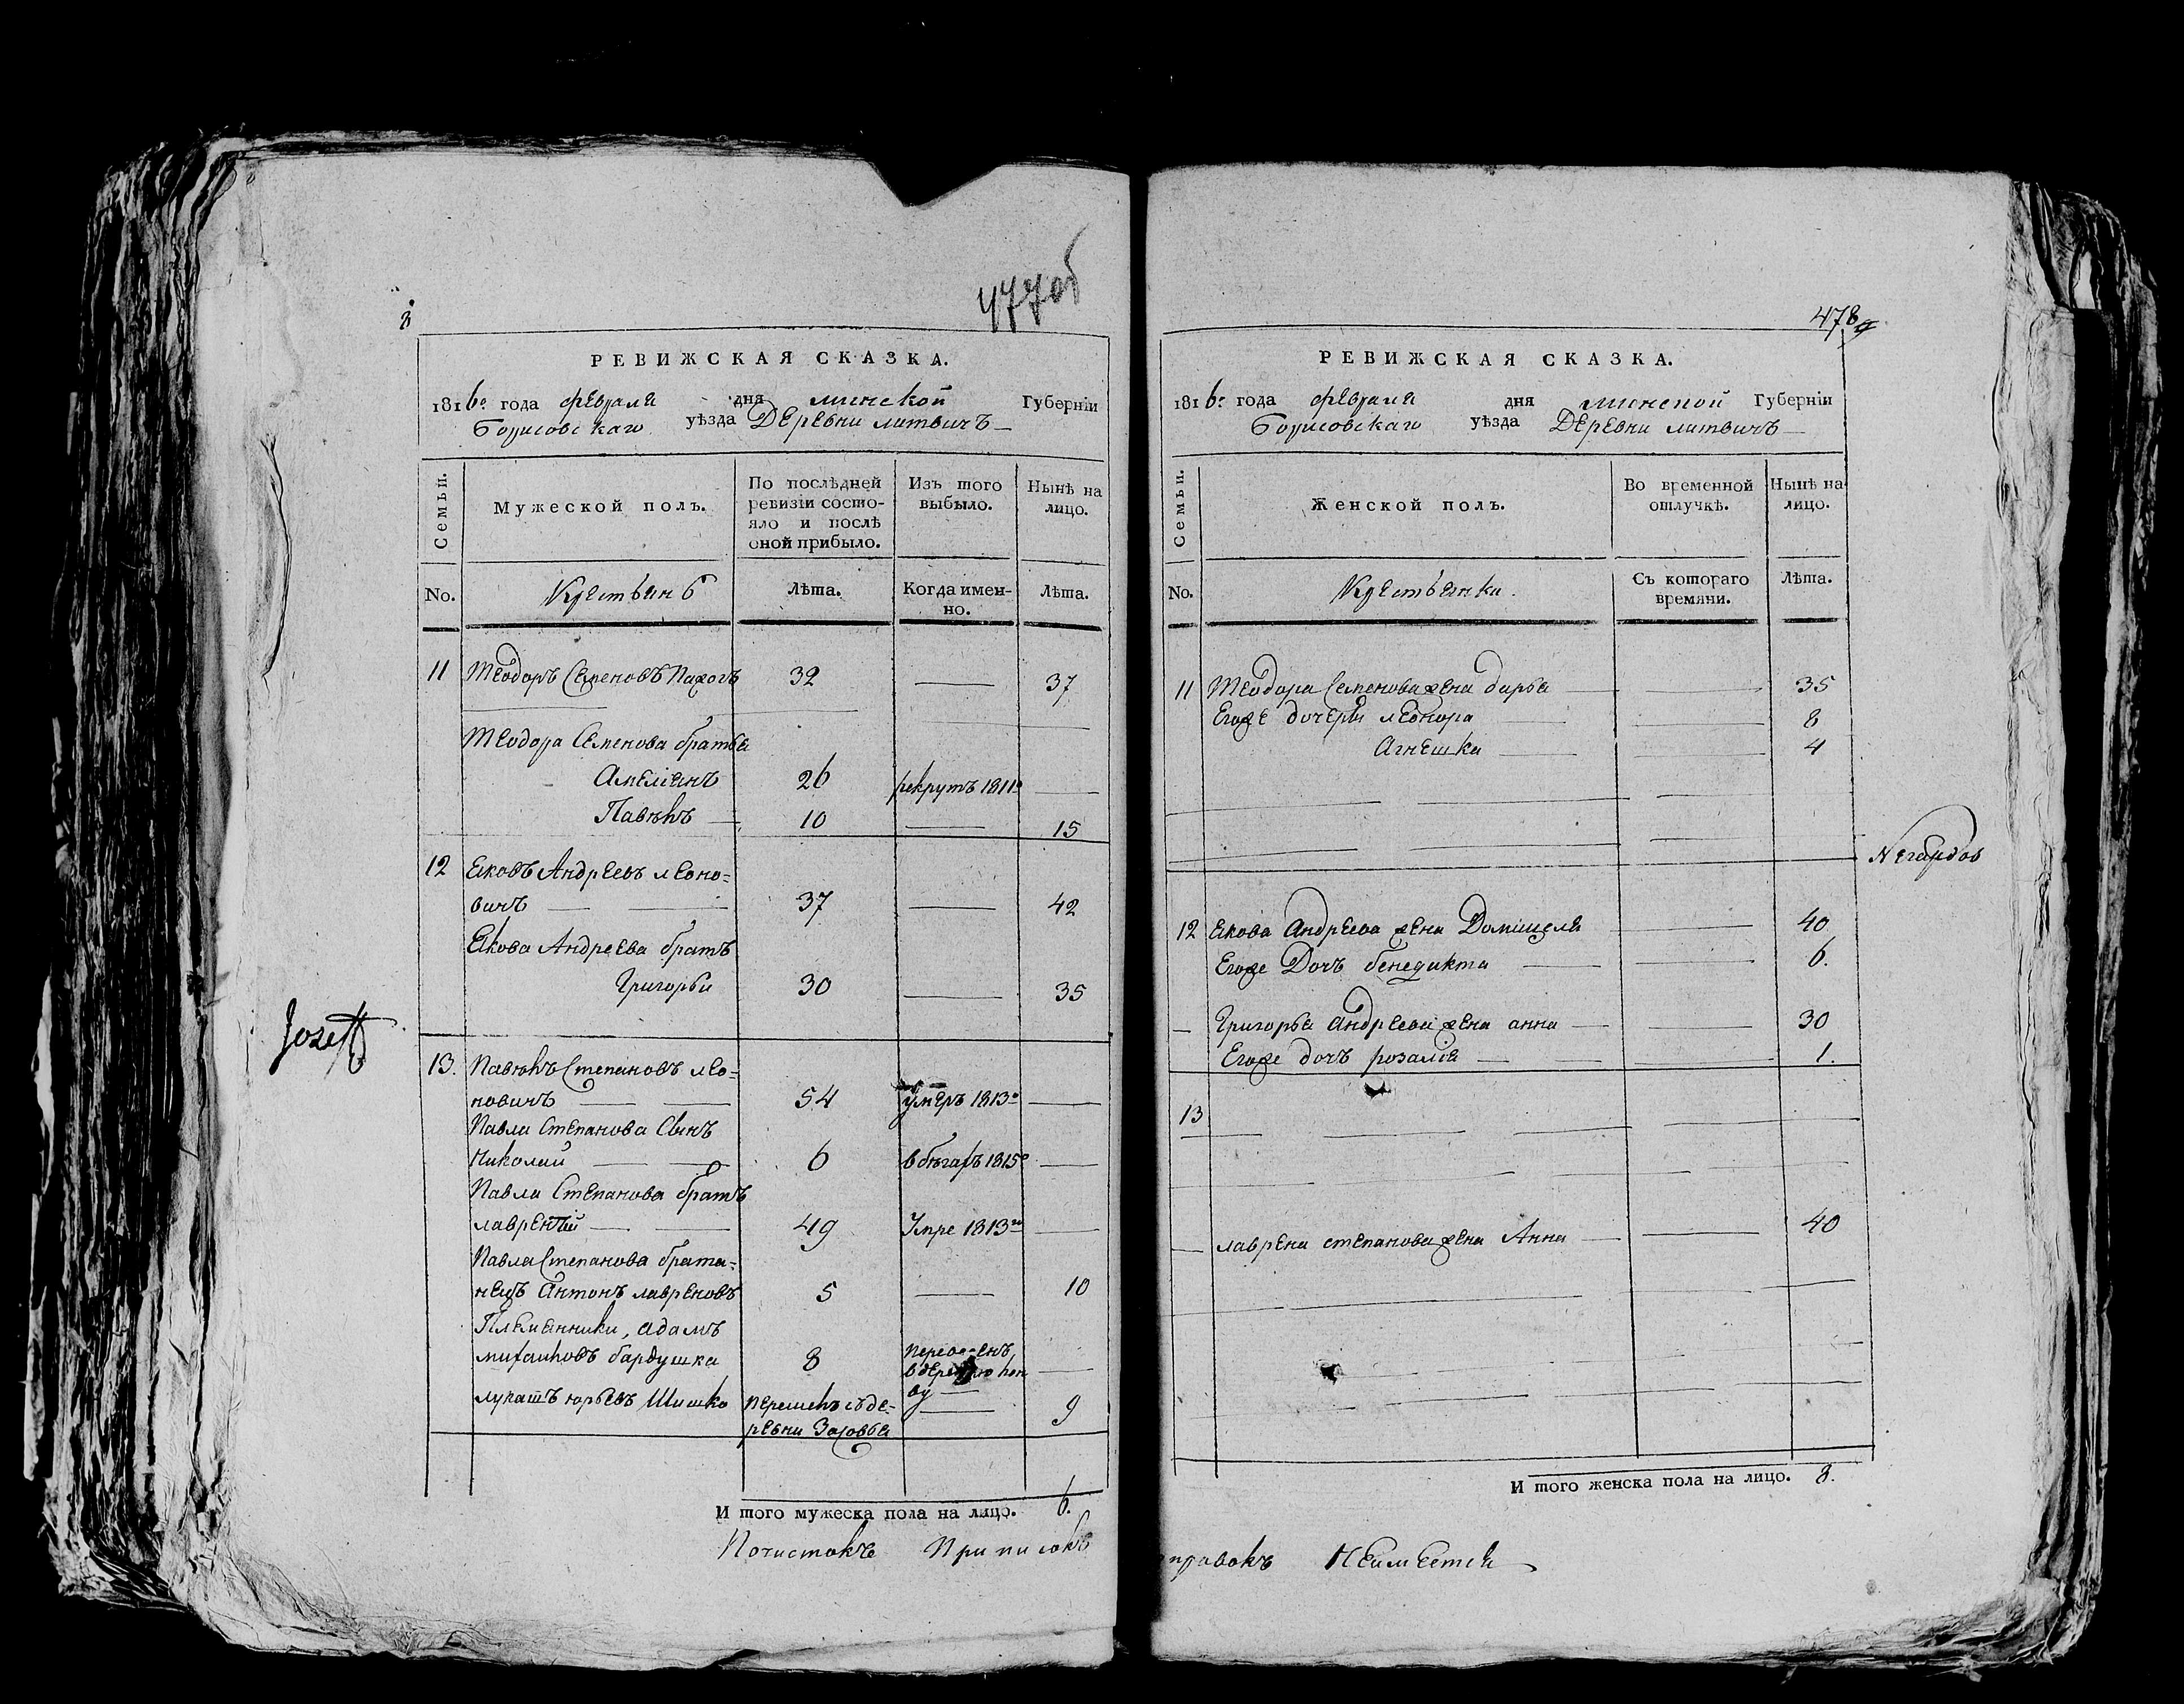 8
477об
РЕВИЖСКАЯ СКАЗКА.
1816го года февраля дня минской Губерніи
Борисовскаго уѣзда Деревни литвичъ
Семьи.
Мужеской полъ.
По послѣдней ревизіи состо-
яло и послѣ оной прибыло.
Изъ того выбыло.
Нынѣ на лицо.
No. Крестьянъ Лѣта. Когда имен-
но. Лѣта.
11 Теодоръ Семеновъ 32 — 37
Теодора Семенова братья
Амеліянъ 26 рекрутъ 1811го —
Павлюкъ 10 — 15
12 Яковъ Андреевъ леоно=
вичъ 37 — 42
Якова Андреева братъ
Григорьи 30 — 35
Jozeff
13. Павлюкъ Степановъ лео=
новичъ 54 умеръ 1813го —
Павла Степанова Сынъ
Николай 6 в бѣгахъ 1815го —
Павла Степанова братъ
лаврентій 49 Умре 1813го —
Павла Степанова брата=
нецъ Антонъ лавреновъ 5 — 10
Племянники, адамъ
михайловъ бардушка 8
лукашъ юрьевъ Шишко — 9
ревни
И того мужеска пола на лицо. 6.
Почистокъ Приписокъ
478
РЕВИЖСКАЯ СКАЗКА.
1816го года февраля дня минской Губерніи
Борисовскаго уѣзда Деревни литвичъ
Семьи.
Женской полъ.
Во временной отлучкѣ.
Нынѣ на лицо.
No. Крестьянки. Съ котораго
времяни. Лѣта.
11 Теодора Семенова жена дарья — 35
Егоже дочери леонора — 8
Агнешка — 4
12 Якова Андреева жена Домицеля — 40
Егоже Дочь бенедикта — 6.
— Григорья андреева жена анна — 30
Егоже дочь розалія — 1.
13
— лаврена степанова жена Анна — 40
И того женска пола на лицо. 8.
правокъ Неимеется